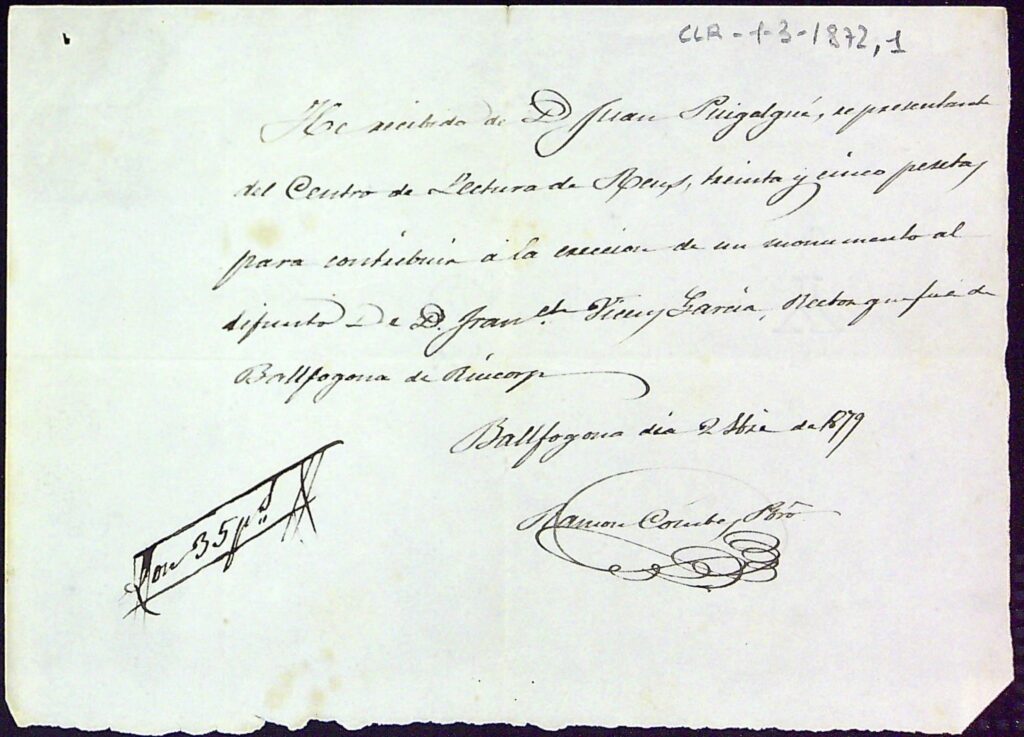 CLR-1-3-1872,1
He recibido de D. Juan Puigalgué, representante
del Centro de Lectura de Reus, treinta y cinco pesetas
para contribuir á la ereccion de un monumento al
difunto D. Fran.co Vicens García, Rector que fué de
Ballfogona de Riucorp
Ballfogona dia 2 de 1879
Ramon Pbro
Son 35 pts